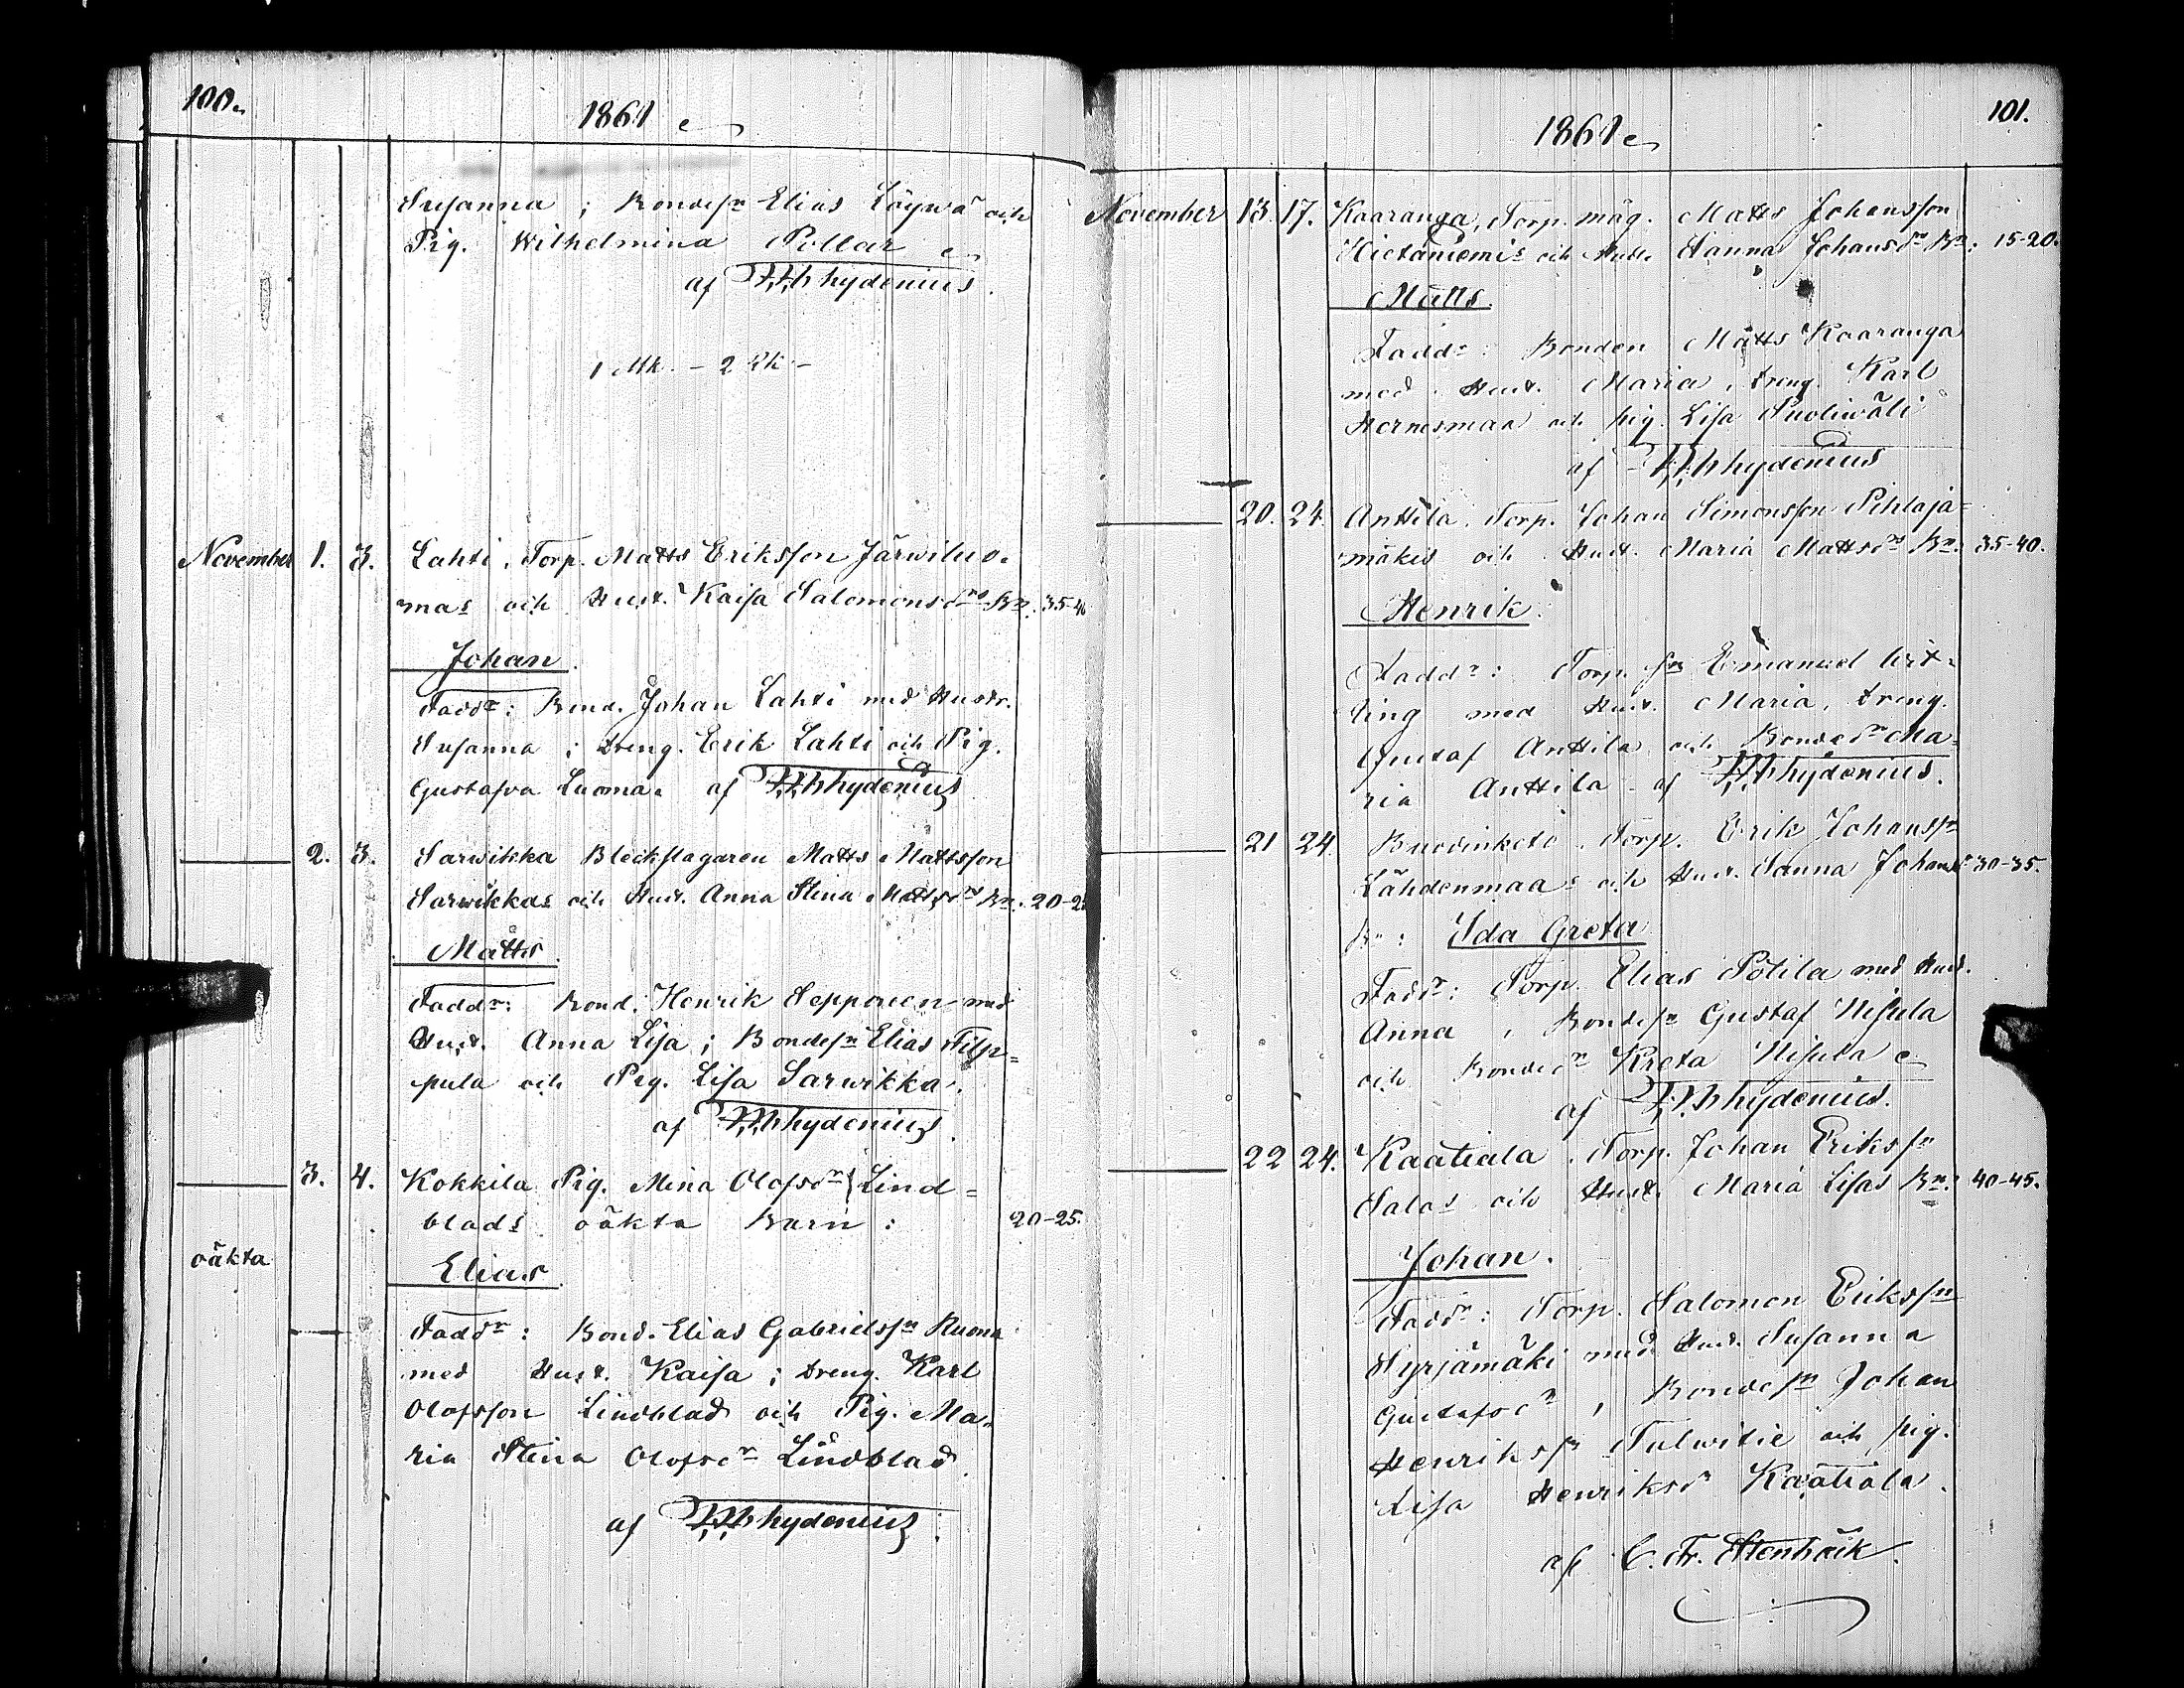 100.
1861
Susanna; Bondesn Elias Löywä och
Pig. Wilhelmina Pollar
af hydenius.
1 Mk. - 2 Qk -
November 1. 3. Lahti, Torp. Matts Eriksson Järwiluo-
mas och Hust. Kaisa Salomonsdrs Bn: 35-40
Johan.
Faddr: Bond. Johan Lahti med Hustr.
Susanna; Dreng. Erik Lahti och Pig.
Gustafva Luoma. af hydenius
2. 3. Sarwikka Bleckslagaren Matts Mattsson
Sarwikkas och Hust. Anna Stina Mattsdrs Bn: 20-25
Matts.
Faddr: Bond. Henrik Sepponen med
Hust. Anna Lisa; Bondesn Elias Filp-
pula och Pig. Lisa Sarwikka.
af hydenius.
3. 4. Kokkila Pig. Mina Olofsdr Lind=
blads oäkta Barn: 20-25.
oäkta
Elias.
Faddr: Bond. Elias Gabrielssn Ruona
med Hust. Kaisa; Dreng. Karl
Olofsson Lindblad och Pig. Ma-
ria Stina Olofsdr Lindblad.
af hydenius.
101.
1861
November 13. 17. Kaaranga, Torp. måg. Matts Johansson
Hietaniemis och Hust. Sanna Johansdrs Bn: 15-20.
Matts.
Faddr: Bonden Matts Kaaranga
med Hust. Maria, Dreng. Karl
Hernesmaa och pig. Lisa Suoliwäli
af hydenius
20. 24. Anttila, Torp. Johan Simonsson Pihlaja=
mäkis och Hust. Maria Mattsdrs Bn: 35-40.
Henrik.
Faddr: Torp. sn Emanuel
ling med Hust. Maria, Dreng.
Gustaf Anttila och Bondedr Ma-
ria Anttila af hydenius.
21 24. Torp. Erik Johanssn
Lähdenmaas och Hust. Sanna Johansdrs 30-35.
Bn: Ida Greta
Faddr: Torp. Elias Potila med Hust.
Anna, Bondesn Gustaf Nisula
och Bondedr Kreta Nisula
af hydenius.
22 24. Kaatiala, Torp. Johan Erikssn
Salos och Hust. Maria Lisas Bn: 40-45.
Johan.
Faddr: Torp. Salomon Erikssn
Syrjämäki med Hust. Susanna
Gustafsdr, Bondesn Johan
Henrikssn Talwitie och pig.
Lisa Henriksdr Kaatiala.
af C. Fr. Stenbäck.